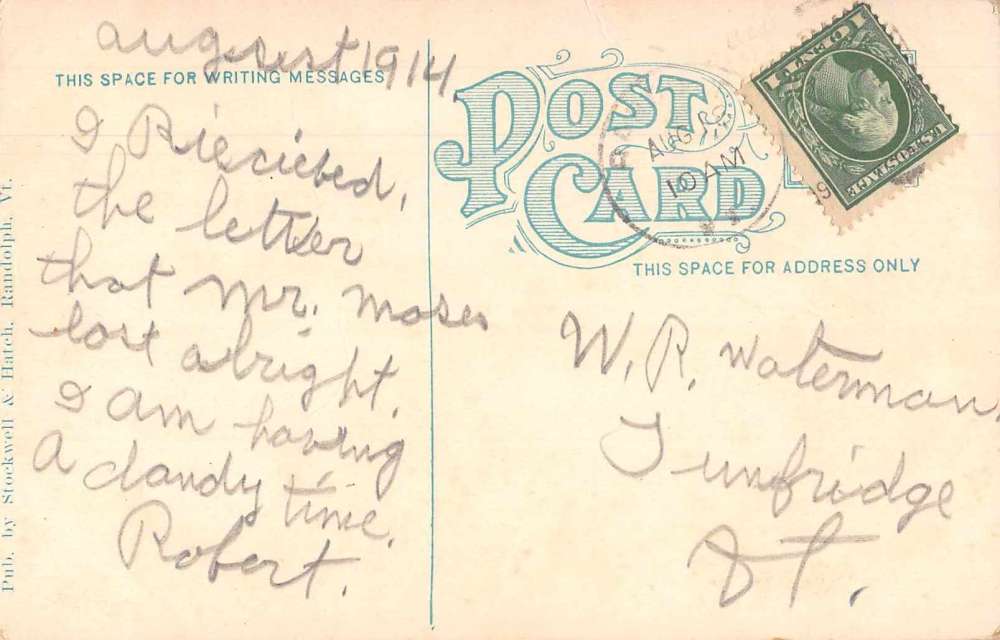 august 1914.
THIS SPACE FOR WRITING MESSAGES
I Rieciebed,
the letter
that Mr. Moses
lost alright.
I am having
A dandy time.
Robert.
Pub. by Stockwell & Hatch, Randolph, Vt.
POST
CARD
AUG
10 AM
U.S. POSTAGE
THIS SPACE FOR ADDRESS ONLY
W. R. Waterman,
Tunbridge
Vt.